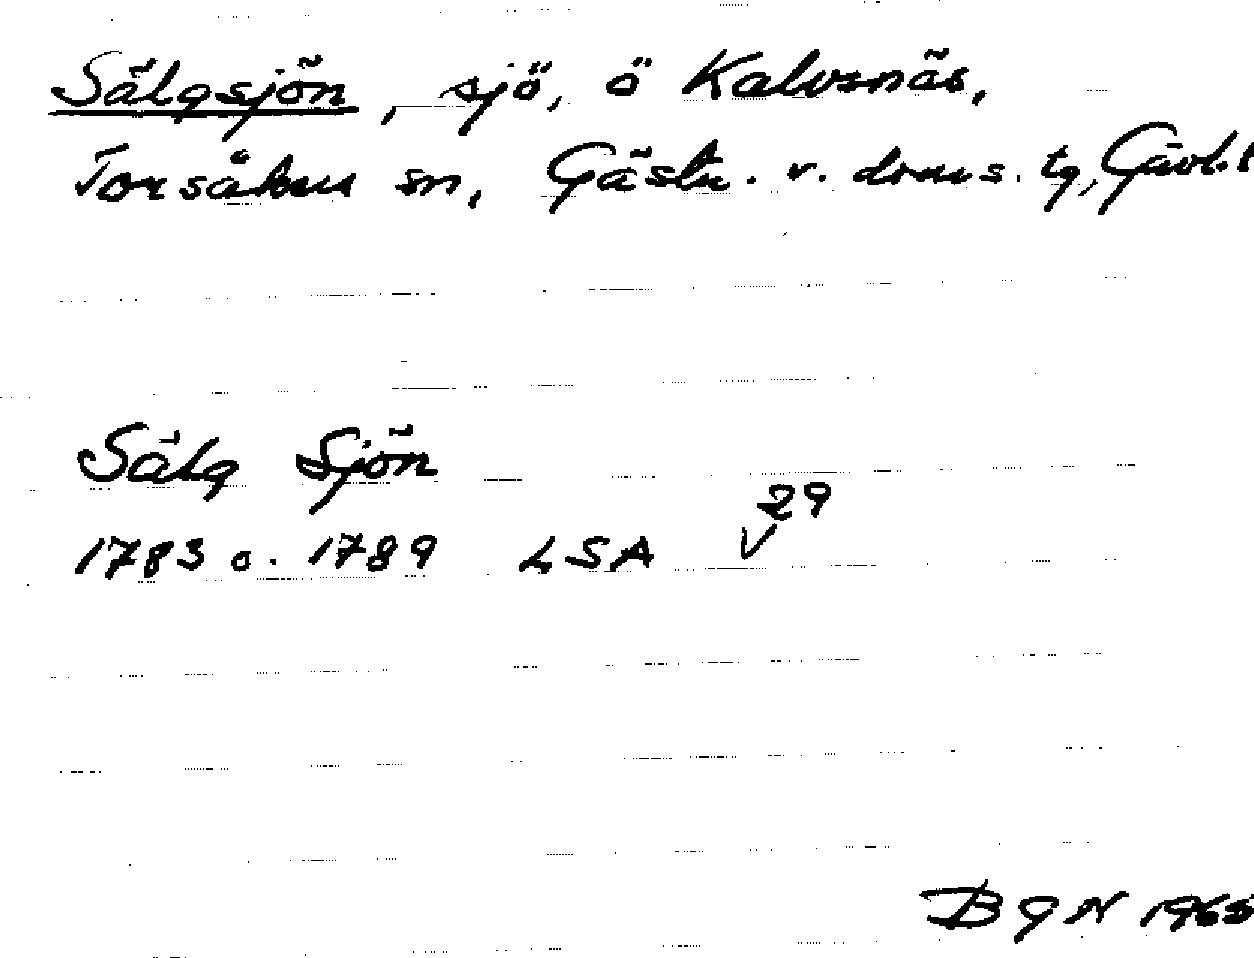 Sälgsjön, sjö, ö Kalvsnäs,
Torsåkers sn, Gästr. v. doms. tg, Gävl. l
Sälg Sjön
29
1783 o. 1789 LSA V
BGN 1965